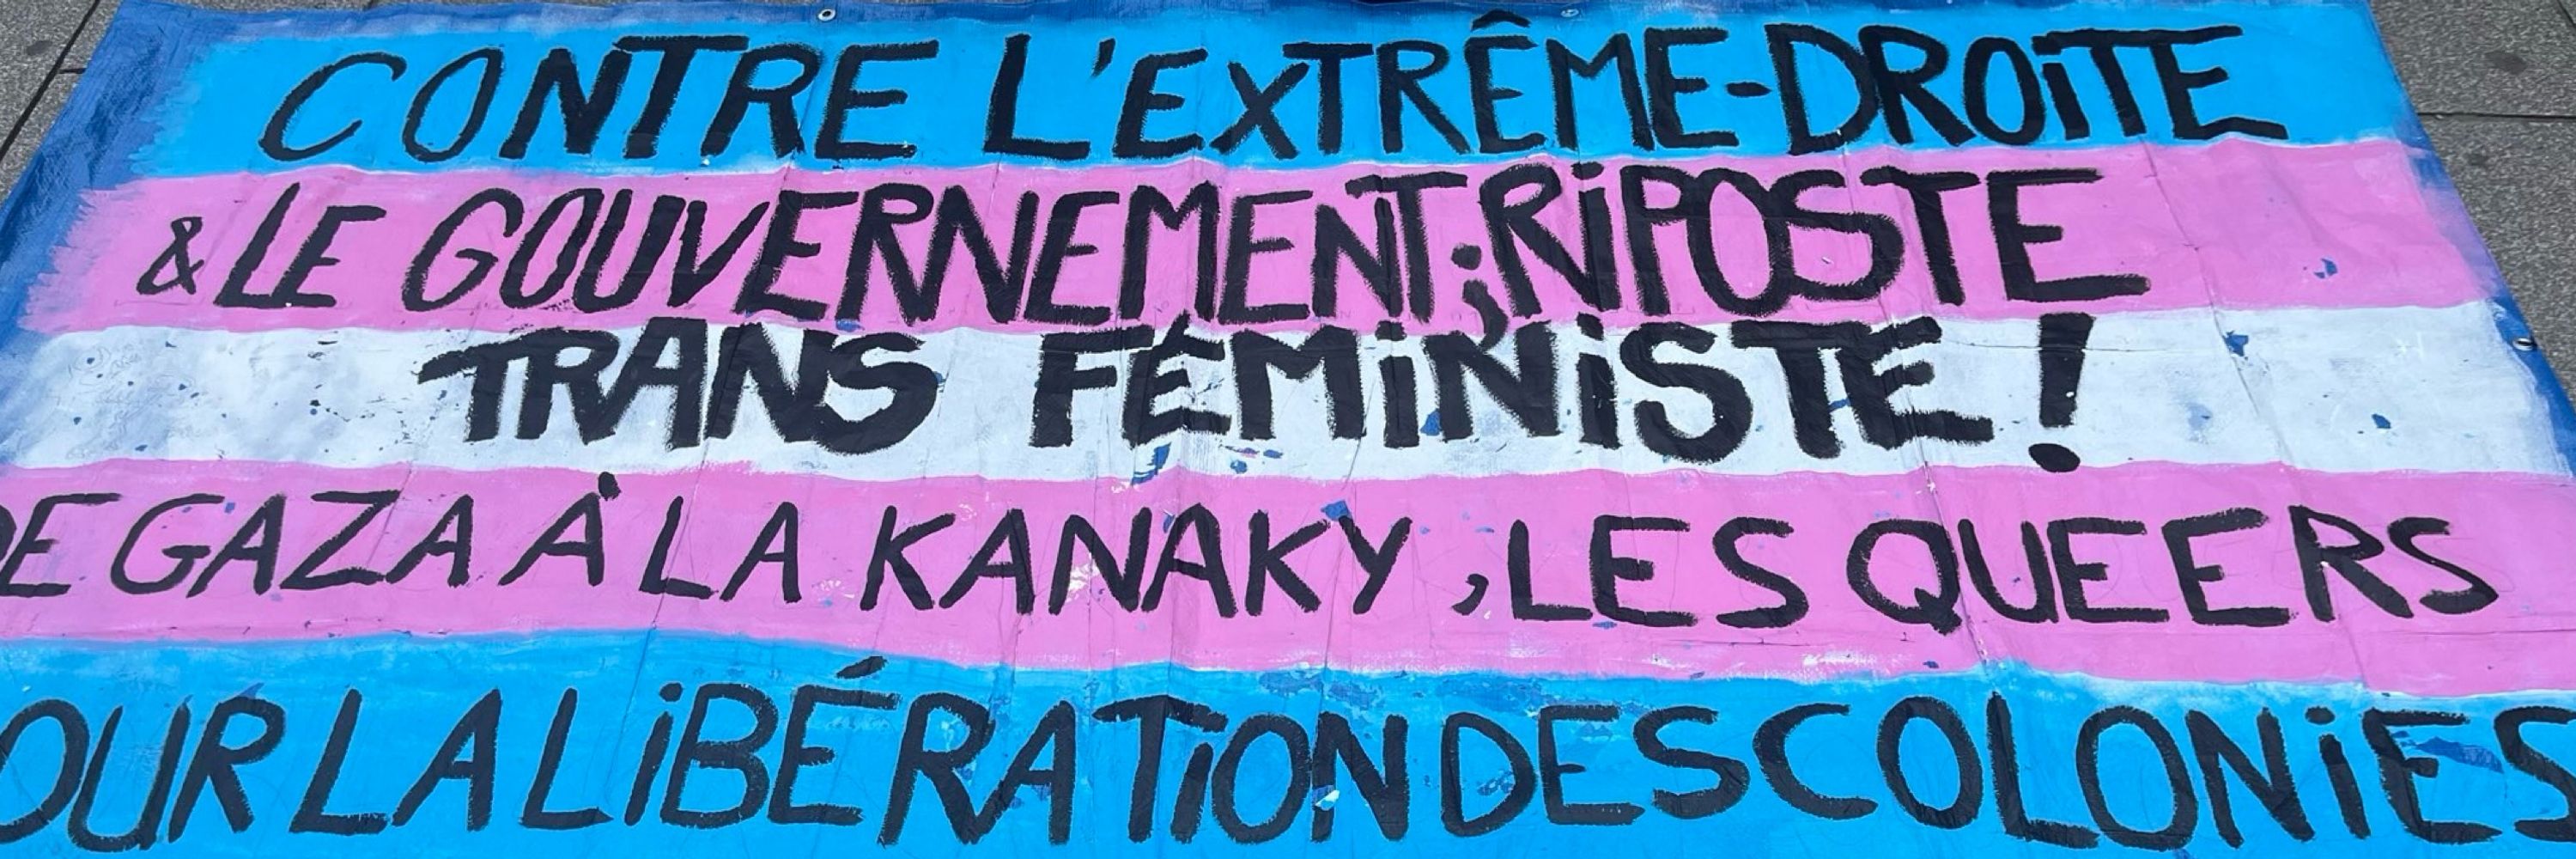 CONTRE L'EXTRÊME-DROITE
& LE GOUVERNEMENT; RIPOSTE
TRANS FÉMINISTE !
DE GAZA À LA KANAKY, LES QUEERS
OUR LA LIBÉRATION DES COLONIES